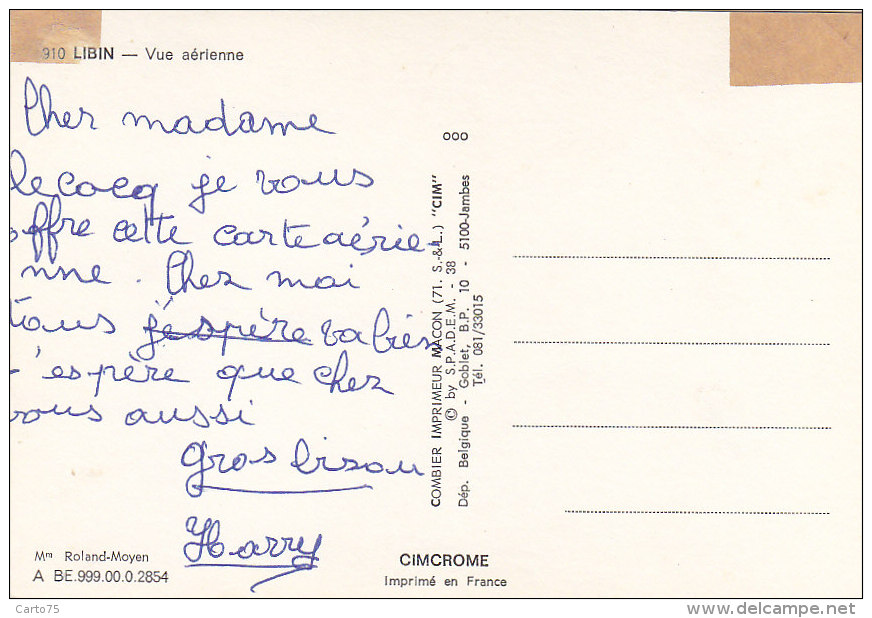 910 LIBIN — Vue aérienne
Cher madame
lecocq je vous
offre cette carte aérie-
nne. Chez moi
tous j'espère va bien
j'espère que chez
vous aussi
Gros bisou
Harry
ooo
COMBIER IMPRIMEUR MACON (71. S.-&L.) "CIM"
© by S.P.A.D.E.M. - 38
Dép. Belgique - Goblet, B.P. 10 - 5100-Jambes
Tél. 081/33015
Mm Roland-Moyen
A BE.999.00.0.2854
CIMCROME
Imprimé en France
Carto75
www.delcampe.net